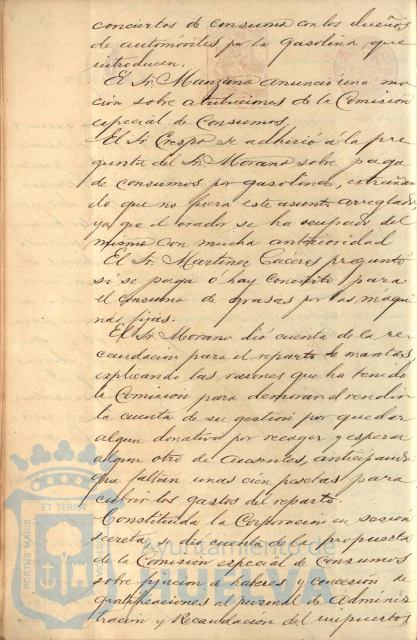 conciertos de consumo con los dueños
de automóviles por la gasolina que
introducen.
El Sr. Manzano anunció una mo
ción sobre atribuciones de la Comisión
especial de Consumos.
El Sr. Crespo se adhirió á la pre
gunta del Sr. Morano sobre pago
de consumos por gasolina, extrañan
do que no fuera este asunto arreglado
ya que el orador se ha ocupado del
mismo con mucha anterioridad
El Sr. Martinez Caceres preguntó
si se paga ó hay concierto para
el consumo de grasas por las maqui
nas fijas.
El Sr. Morano dió cuenta de la re
caudación para el reparto de mantas,
explicando las razones que ha tenido
la Comisión para demorar el rendir
la cuenta de su gestión por quedar
algun donativo por recoger y esperar
algun otro de ausentes, anticipando
que faltan unas cien pesetas para
cubrir los gastos del reparto.
Constituida la Corporación en sesión
secreta, se dió cuenta de la propuesta
de la Comisión especial de Consumos
sobre fijación de haberes y concesión de
gratificaciones al personal de Adminis
tración y Recaudación del impuesto,
PORTUS MARIS
ET TERRAE
Ayuntamiento de
HUELVA